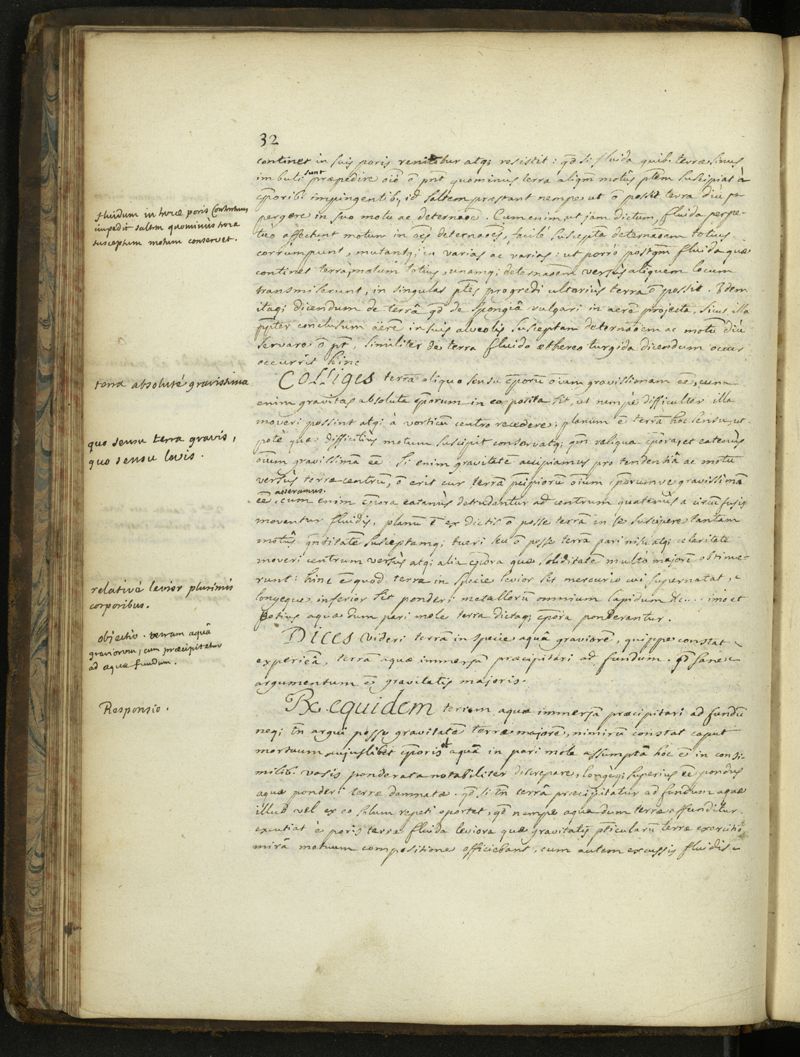 32
continet in suis poris renititur atq; resistit : qd si fluida quib. terræ sinus
imbuti sunt præpedire oiē ō pnt quominus terra aliqm motûs ptem suscipiat à
cporib; impingentib; id saltem præstant nempe ut ō possit terra diu
pergere in suo motu ac deternaōe. Cum enim, ut jam dictum, fluida perpe-
tuo affectent motum in deternaōes, facile suscepta deternaōem totius
corrumpunt, mutantq; in varias ac varias : ut porro postqm fluida quæ
continet terra motum totius, unamq; deternaōem versùs aliquem locum
transmiserunt, in singulas ptes progredi ulteriùs terra ō possit. Idem
itaq; dicendum de terrâ qd de spongiâ vulgari in aerē projectâ, sicut illa
ppter conclusum äerē in suis alveolis susceptam deternaōem ac motū diu
servare ō pt, similiter de terra fluido æthereo turgida dicendum
occurrit hinc
Colliges terrā aliquo sensu cporū oium gravissimam eē, cum
enim gravitas absoluta cporum in eo posita sit, ut nempè difficulter illa
moveri possint atq; à vorticū centro recedere; planum ē terrā hoc sensu, ut
potè quæ difficiliùs motum suscipit conservatq; qm reliqua cpora, et eatenùs
oium gravissimā eē. Si enim gravitatē accipiamus pro tendentiâ ac motu
versùs terræ centrum, ō erit cur terrā oium cporum gravissimā
eē asseramus. cum enim cpora eatenùs detrudantur ad centrum quatenùs a
moventur fluidis, planū ē ex dictis ō posse terrā in se suscipere tantam
motûs qntitatē susceptamq; tueri seu ō posse terrā pari nisu atq; celeritate
moveri centrum versùs atq; alia cpora quæ soliditatē multò majorē obtinue-
runt : hinc ē quod terra in specie levior sit mercurio cui supernatat,
longeque inferior sit ponderi metallorū omnium lapidum &c... imo et
potius aquæ dum pari mole terra dictaq; cpora ponderantur.
Dices videri terrā in specie aquâ graviorē, quippe constat
experiēâ, terrā aquæ immersā præcipitari ad fundum. qd sane
argumentum ē gravitatis majoris.
Rx equidem terram aquæ immersā præcipitari ad fundū
neq; īn arguì posse gravitatē terræ majorē, nimirū constat caput
mortuum cujuslibet cporis et aquā in pari mole assumptā hoc ē in consi-
milib; vasis ponderata notabiliter discrepare, longeq; superius eē pondus
aquæ ponderi terræ damnatæ. qd si īn terrâ præcipitatur ad fundum aquæ
illud vel ex eo solum repeti oportet, qd nempe aqua dum terræ affunditur
excutiat è poris terræ fluida leviora quæ gravitatis pticularū terræ exercitio
mirâ motuum compositione officiebant, cum autem excussis fluidis
fluidum in terræ poris contentum
impedit saltem quominus terra
susceptum motum conservet.
terra absolutè gravissima
quo sensu terra gravis,
quo sensu levis.
relativè levior plurimis
corporibus.
objectio. terram aquâ
graviorem, cum præcipitatur
ad aquæ fundum.
Responsio.